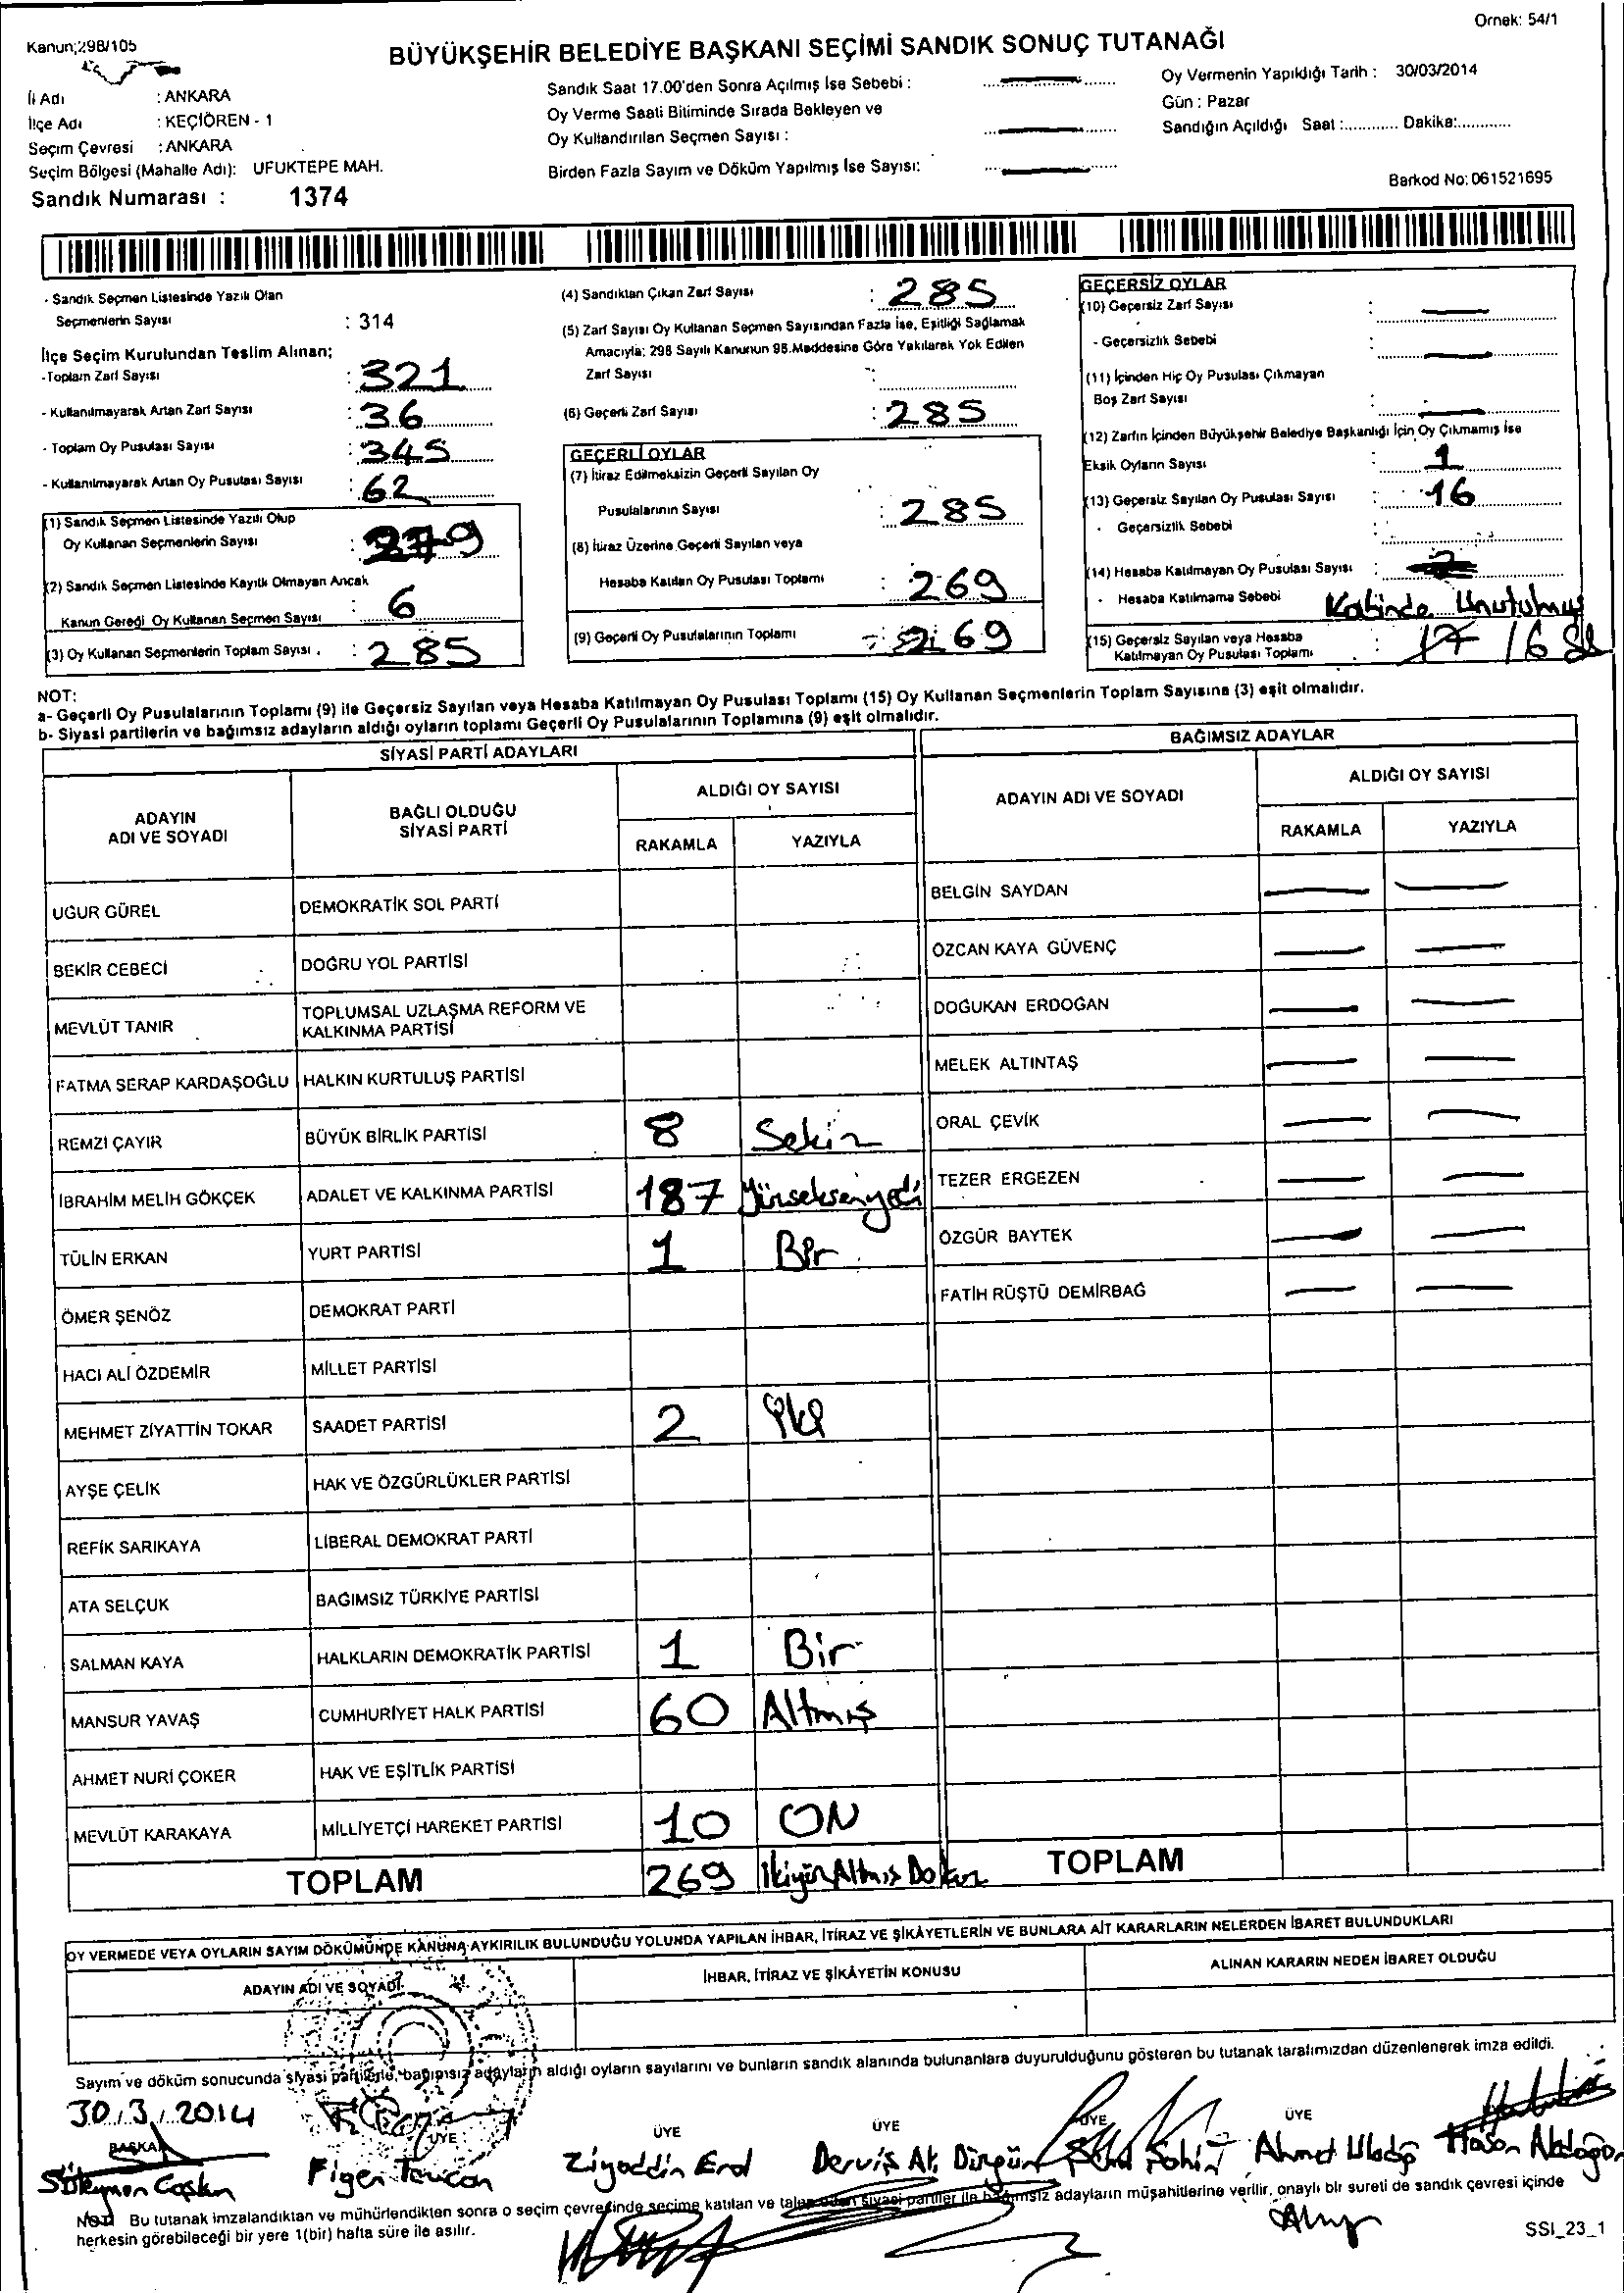 Örnek: 54/1
Kanun;298/105
BÜYÜKŞEHİR BELEDİYE BAŞKANI SEÇİMİ SANDIK SONUÇ TUTANAĞI
İl Adı : ANKARA
İlçe Adı : KEÇİÖREN - 1
Seçim Çevresi : ANKARA
Seçim Bölgesi (Mahalle Adı): UFUKTEPE MAH.
Sandık Numarası : 1374
Sandık Saat 17.00'den Sonra Açılmış İse Sebebi :
Oy Verme Saati Bitiminde Sırada Bekleyen ve
Oy Kullandırılan Seçmen Sayısı :
Birden Fazla Sayım ve Döküm Yapılmış İse Sayısı:
Oy Vermenin Yapıldığı Tarih : 30/03/2014
Gün : Pazar
Sandığın Açıldığı Saat :........... Dakika:...........
Barkod No: 061521695
- Sandık Seçmen Listesinde Yazılı Olan
Seçmenlerin Sayısı : 314
İlçe Seçim Kurulundan Teslim Alınan;
-Toplam Zarf Sayısı : 321
- Kullanılmayarak Artan Zarf Sayısı : 36
- Toplam Oy Pusulası Sayısı : 345
- Kullanılmayarak Artan Oy Pusulası Sayısı : 62
(1) Sandık Seçmen Listesinde Yazılı Olup
Oy Kullanan Seçmenlerin Sayısı : 279
(2) Sandık Seçmen Listesinde Kayıtlı Olmayan Ancak
Kanun Gereği Oy Kullanan Seçmen Sayısı : 6
(3) Oy Kullanan Seçmenlerin Toplam Sayısı . : 285
(4) Sandıktan Çıkan Zarf Sayısı : 285
(5) Zarf Sayısı Oy Kullanan Seçmen Sayısından Fazla İse, Eşitliği Sağlamak
Amacıyla; 298 Sayılı Kanunun 98.Maddesine Göre Yakılarak Yok Edilen
Zarf Sayısı :
(6) Geçerli Zarf Sayısı : 285
GEÇERLİ OYLAR
(7) İtiraz Edilmeksizin Geçerli Sayılan Oy
Pusulalarının Sayısı : 285
(8) İtiraz Üzerine Geçerli Sayılan veya
Hesaba Katılan Oy Pusulası Toplamı : 269
(9) Geçerli Oy Pusulalarının Toplamı : 269
GEÇERSİZ OYLAR
(10) Geçersiz Zarf Sayısı :
- Geçersizlik Sebebi :
(11) İçinden Hiç Oy Pusulası Çıkmayan
Boş Zarf Sayısı :
(12) Zarfın İçinden Büyükşehir Belediye Başkanlığı İçin Oy Çıkmamış İse
Eksik Oyların Sayısı : 1
(13) Geçersiz Sayılan Oy Pusulası Sayısı : 16
- Geçersizlik Sebebi :
(14) Hesaba Katılmayan Oy Pusulası Sayısı :
- Hesaba Katılmama Sebebi Kabinde Unutulmuş
(15) Geçersiz Sayılan veya Hesaba
Katılmayan Oy Pusulası Toplamı : 17 16
NOT:
a- Geçerli Oy Pusulalarının Toplamı (9) ile Geçersiz Sayılan veya Hesaba Katılmayan Oy Pusulası Toplamı (15) Oy Kullanan Seçmenlerin Toplam Sayısına (3) eşit olmalıdır.
b- Siyasi partilerin ve bağımsız adayların aldığı oyların toplamı Geçerli Oy Pusulalarının Toplamına (9) eşit olmalıdır.
SİYASİ PARTİ ADAYLARI
ADAYIN
ADI VE SOYADI
BAĞLI OLDUĞU
SİYASİ PARTİ
ALDIĞI OY SAYISI
RAKAMLA YAZIYLA
UĞUR GÜREL DEMOKRATİK SOL PARTİ
BEKİR CEBECİ DOĞRU YOL PARTİSİ
MEVLÜT TANIR TOPLUMSAL UZLAŞMA REFORM VE
KALKINMA PARTİSİ
FATMA SERAP KARDAŞOĞLU HALKIN KURTULUŞ PARTİSİ
REMZİ ÇAYIR BÜYÜK BİRLİK PARTİSİ 8 Sekiz
İBRAHİM MELİH GÖKÇEK ADALET VE KALKINMA PARTİSİ 187 Yüzseksenyedi
TÜLİN ERKAN YURT PARTİSİ 1 Bir
ÖMER ŞENÖZ DEMOKRAT PARTİ
HACI ALİ ÖZDEMİR MİLLET PARTİSİ
MEHMET ZİYATTİN TOKAR SAADET PARTİSİ 2 İki
AYŞE ÇELİK HAK VE ÖZGÜRLÜKLER PARTİSİ
REFİK SARIKAYA LİBERAL DEMOKRAT PARTİ
ATA SELÇUK BAĞIMSIZ TÜRKİYE PARTİSİ
SALMAN KAYA HALKLARIN DEMOKRATİK PARTİSİ 1 Bir
MANSUR YAVAŞ CUMHURİYET HALK PARTİSİ 60 Altmış
AHMET NURİ ÇOKER HAK VE EŞİTLİK PARTİSİ
MEVLÜT KARAKAYA MİLLİYETÇİ HAREKET PARTİSİ 10 ON
TOPLAM 269 İkiyüzAltmış Dokuz
BAĞIMSIZ ADAYLAR
ADAYIN ADI VE SOYADI
ALDIĞI OY SAYISI
RAKAMLA YAZIYLA
BELGİN SAYDAN
ÖZCAN KAYA GÜVENÇ
DOĞUKAN ERDOĞAN
MELEK ALTINTAŞ
ORAL ÇEVİK
TEZER ERGEZEN
ÖZGÜR BAYTEK
FATİH RÜŞTÜ DEMİRBAĞ
TOPLAM
OY VERMEDE VEYA OYLARIN SAYIM DÖKÜMÜNDE KANUNA AYKIRILIK BULUNDUĞU YOLUNDA YAPILAN İHBAR, İTİRAZ VE ŞİKÂYETLERİN VE BUNLARA AİT KARARLARIN NELERDEN İBARET BULUNDUKLARI
ADAYIN ADI VE SOYADI İHBAR, İTİRAZ VE ŞİKÂYETİN KONUSU ALINAN KARARIN NEDEN İBARET OLDUĞU
Sayım ve döküm sonucunda siyasi partilerle, bağımsız adayların aldığı oyların sayılarını ve bunların sandık alanında bulunanlara duyurulduğunu gösteren bu tutanak tarafımızdan düzenlenerek imza edildi.
30.3.2014
BAŞKAN ÜYE ÜYE ÜYE ÜYE ÜYE
Süleyman Coşkun Figen Ziyaddin Erol Derviş At. Şahin Ahmet Hasan
Not: Bu tutanak imzalandıktan ve mühürlendikten sonra o seçim çevresinde seçime katılan ve talep eden siyasi partiler ile bağımsız adayların müşahitlerine verilir, onaylı bir sureti de sandık çevresi içinde
herkesin görebileceği bir yere 1(bir) hafta süre ile asılır.
SSI_23_1